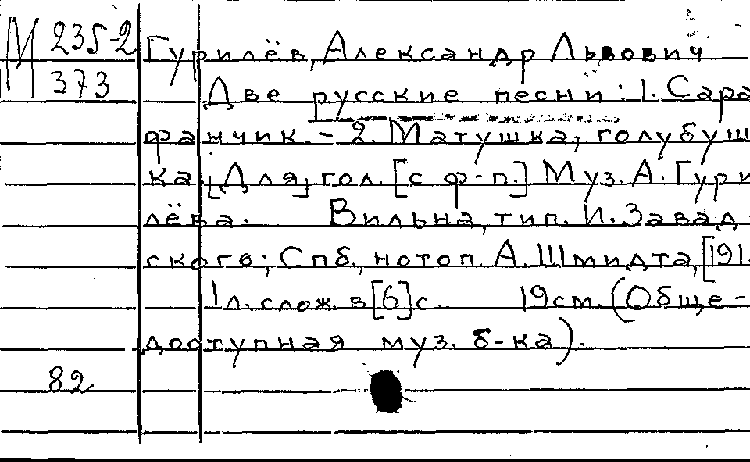 М 235-2
373
Гурилёв, Александр Львович
Две русские песни: 1. Сара
фанчик. - 2. Матушка, голубуш
ка. [Для] гол. [с ф-п.] Муз. А. Гури
лёва. Вильна, тип. И. Завад
ского; Спб., нотоп. А. Шмидта, [191
1 л. слож. в [6] с. 19 см. (Обще-
доступная муз. б-ка).
82